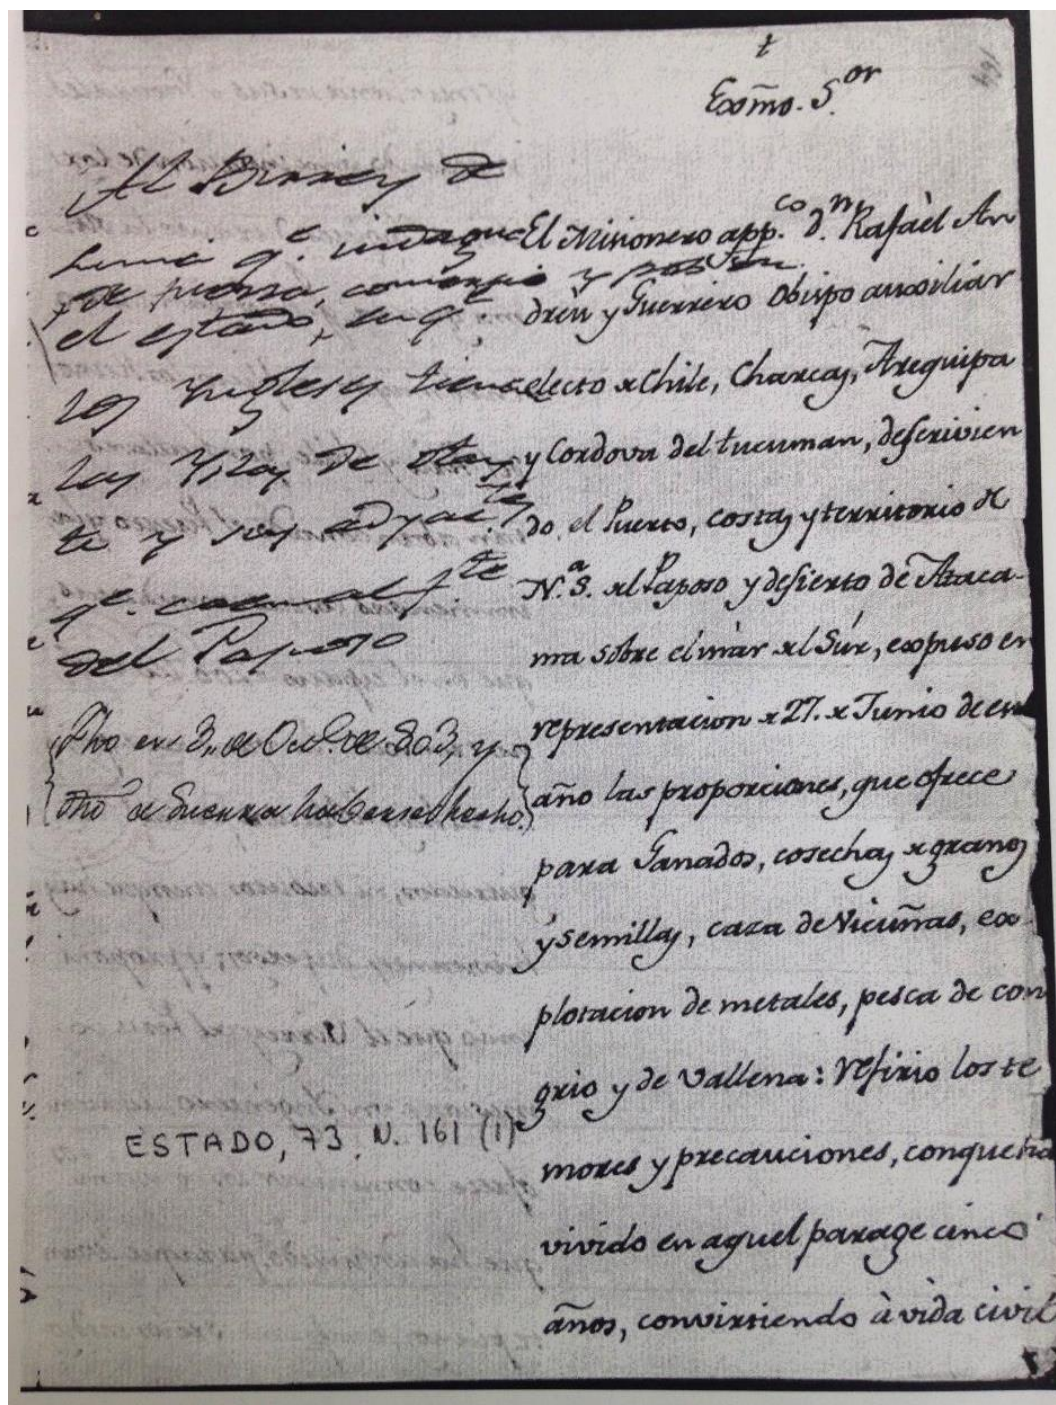 †
Exmõ. S.or
191
Al Birrey de
Lima q.e indague
de guerra, comercio y poblon.
el estado, en q.e
los Yngleses tienen
las Yslas de otay
te y sus adyac.tes
q.e caen al f.te
del Paposo
Fho en 3,, de Oct.e de 803, y
otño a Guerra haberse hecho.
El Misionero app.co d.n Rafaèl An
drèu y Guerrero Obispo auxîliar
electo de Chile, Charcas, Arequipa
y Cordova del tucuman, descrivien
do el Puerto, costas y territorio de
N.a S. del Paposo y desierto de Ataca-
ma sobre el màr del Sùr, expuso en
representacion de 27. de Junio de este
año las proporciones, que ofrece
para Ganados, cosechas de granos
y semillas, caza de Vicuñas, ex-
plotacion de metales, pesca de con
grio y de Vallena: refirio los te
mores y precauciones, con que ha
vivido en aquel parage cinco
años, convirtiendo à vida civil
ESTADO, 73, N. 161 (1)